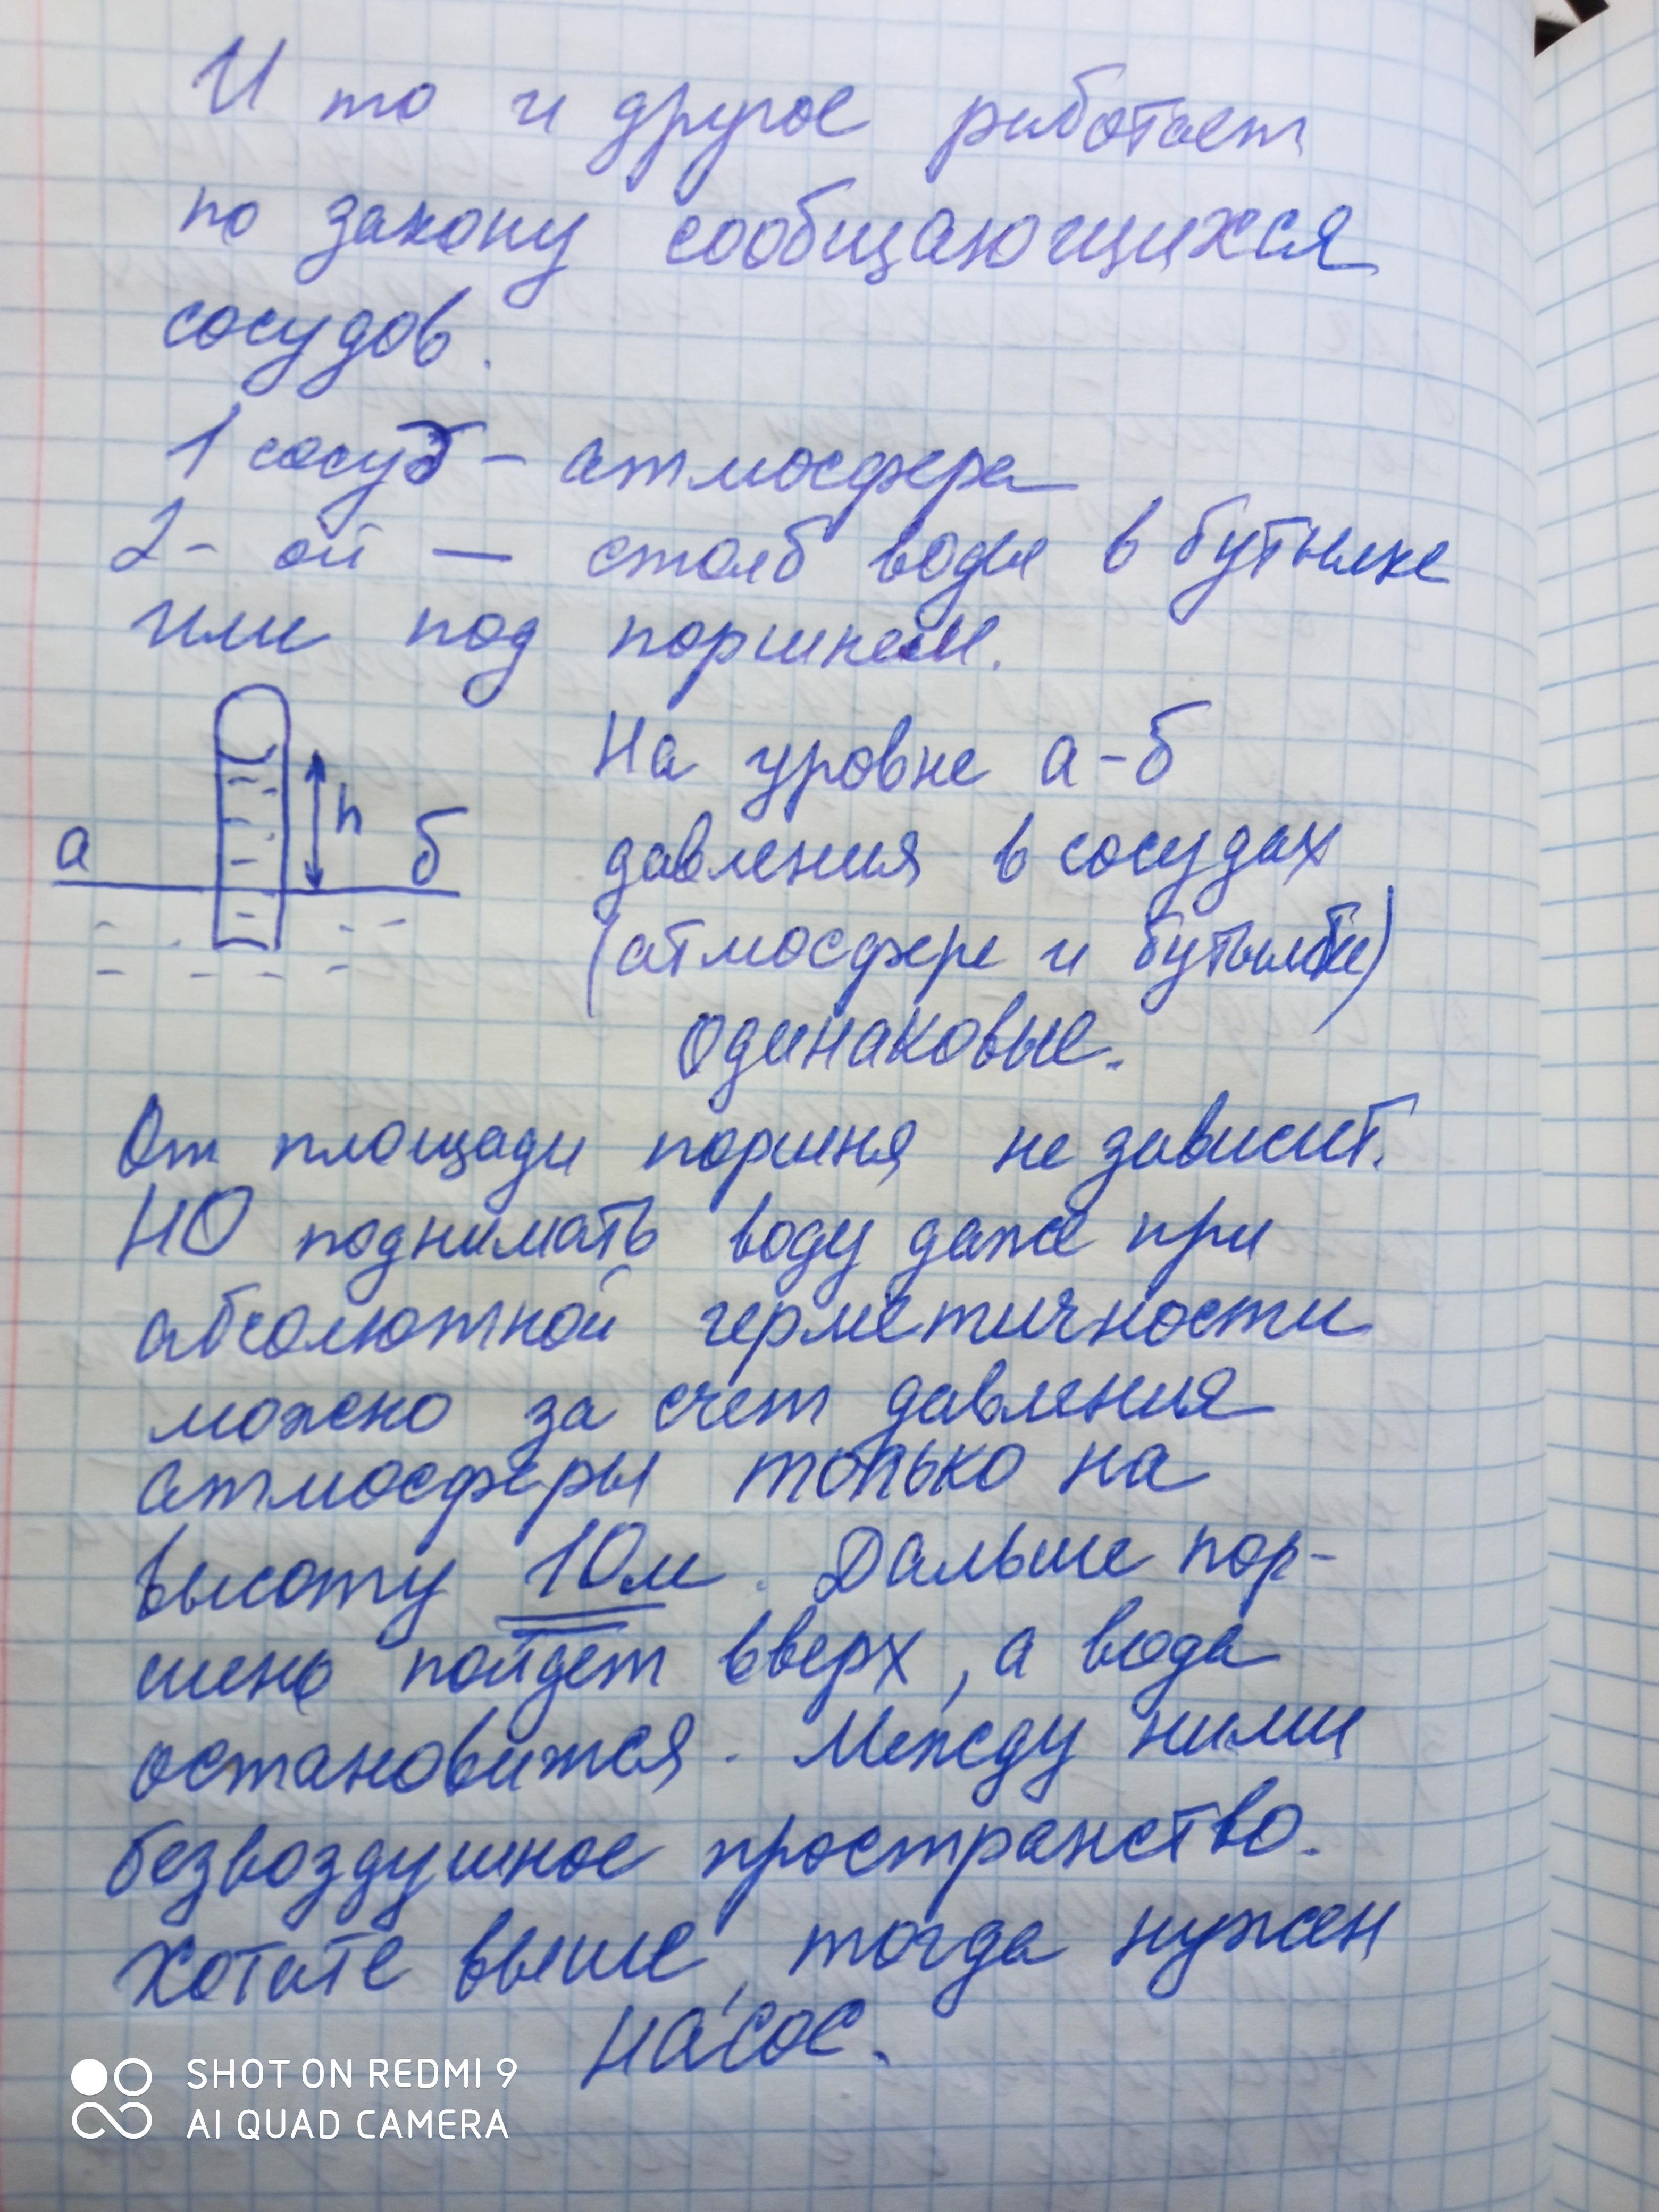 И то и другое работает
по закону сообщающихся
сосудов.
1 сосуд - атмосфера
2-ой — столб воды в бутылке
или под поршнем.
На уровне а-б
h
а
б
давления в сосудах
(атмосфере и бутылке)
одинаковые.
От площади поршня не зависит.
НО поднимать воду даже при
абсолютной герметичности
можно за счет давления
атмосферы только на
высоту 10м. Дальше пор-
шень пойдет вверх, а вода
остановится. Между ними
безвоздушное пространство.
Хотите выше, тогда нужен
насос.
SHOT ON REDMI 9
AI QUAD CAMERA